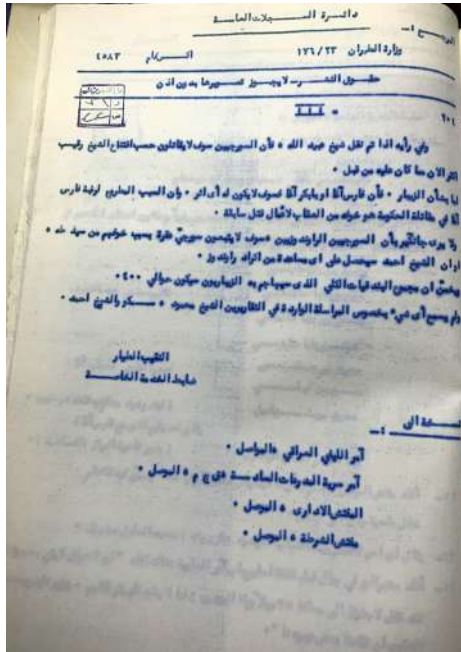 دائرة السجلات العامة
المرجع :ــ
وزارة الطيران ١٧٦/٢٣ الرقم ٤٥٨٣
حقوق النشر ــ لا يجوز تصويرها بدون اذن
٢٠١
• III
وفي رأيه اذا تم نقل شيخ عبيد الله • فأن السورجيين سوف لا يقاتلون حسب اقتناع الشيخ رقيب
اكثر الان مما كان عليه من قبل •
اما بشأن الزيبار • فأن فارس آغا او بابكر آغا سوف لا يكون له أي اثر • وان السبب لرغبة فارس
آغا في مقاتلة الحكومة هو خوفه من العقاب لأفعال قتل سابقة •
ولا يرى جانكير بأن السورجيين الراوندوزيين سوف لا يتبعون سورجي عقرة بسبب خوفهم من سيد طه •
او ان الشيخ احمد سيحصل على اى مساعدة من اتراك راوندوز •
ويخمن ان مجموع البندقيات الكلي الذى سيهاجم به الزيباريون سيكون حوالي ٤٠٠ •
ولم يسمع أى شيء بخصوص المراسلة الواردة في التقارير بين الشيخ محمود • وسمكو والشيخ احمد •
النقيب الطيار
ضابط الخدمة الخاصة
نسخة الى :ــ
آمر الليفي العراقي • الموصل •
آمر سرية المدرعات السادسة ق ج م • الموصل •
المفتش الادارى • الموصل •
مفتش الشرطة • الموصل •